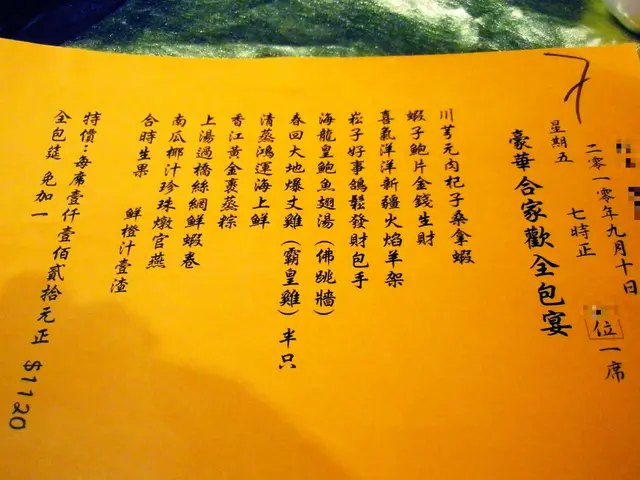 二零一零年九月十日
位一席
七時正
星期五
豪華合家歡全包宴
川芎元肉杞子桑拿蝦
蝦子鮑片金錢生財
喜氣洋洋新疆火焰羊架
崧子好事鴿鬆發財包手
海龍皇鮑魚翅湯(佛跳牆)
春回大地爆丈雞(霸皇雞)半只
清蒸鴻運海上鮮
香江黃金裹蒸粽
上湯過橋絲網鮮蝦卷
南瓜椰汁珍珠燉官燕
合時生果 鮮橙汁壹渣
特價:每席壹仟壹佰貳拾元正 $1120
全包莚 免加一